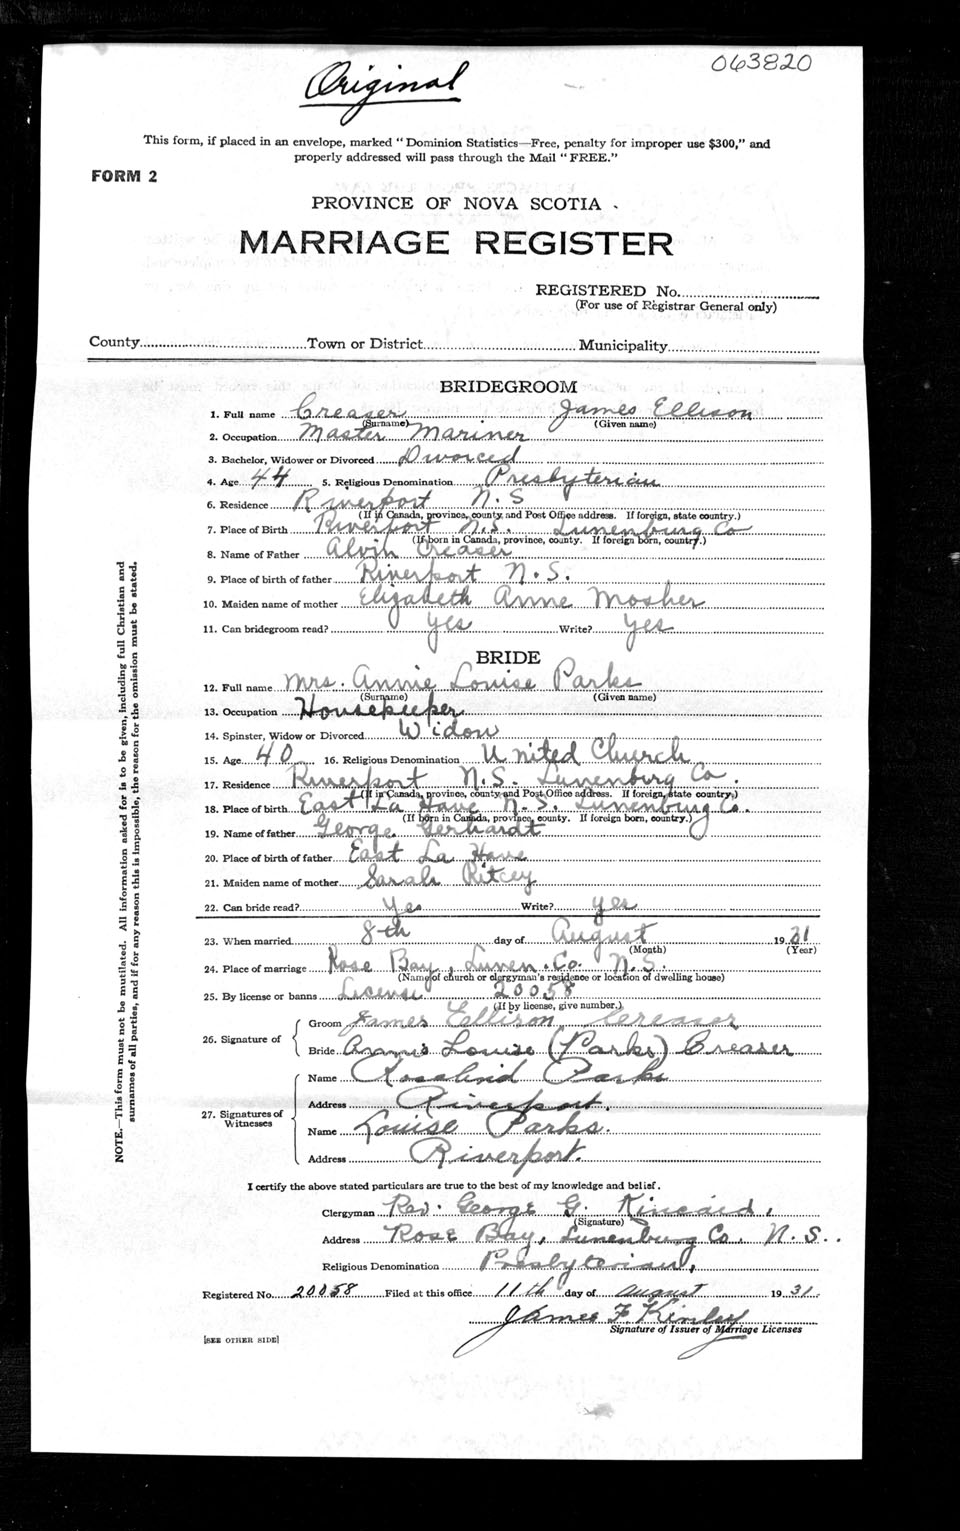 063820
Original
This form, if placed in an envelope, marked "Dominion Statistics—Free, penalty for improper use $300," and
properly addressed will pass through the Mail "FREE."
FORM 2
PROVINCE OF NOVA SCOTIA
MARRIAGE REGISTER
REGISTERED No.
(For use of Registrar General only)
County Town or District Municipality
BRIDEGROOM
1. Full name Creaser James Ellison
(Surname) (Given name)
2. Occupation Master Mariner
3. Bachelor, Widower or Divorced Divorced
4. Age 44 5. Religious Denomination Presbyterian
6. Residence Riverport N.S
(If in Canada, province, county and Post Office address. If foreign, state country.)
7. Place of Birth Riverport N.S. Lunenburg Co
(If born in Canada, province, county. If foreign born, country.)
8. Name of Father Alvin Creaser
9. Place of birth of father Riverport N.S.
10. Maiden name of mother Elizabeth Anne Mosher
11. Can bridegroom read? yes Write? yes
BRIDE
12. Full name Mrs. Annie Louise Parks
(Surname) (Given name)
13. Occupation Housekeeper
14. Spinster, Widow or Divorced Widow
15. Age 40 16. Religious Denomination United Church
17. Residence Riverport N.S. Lunenburg Co.
(If in Canada, province, county and Post Office address. If foreign, state country.)
18. Place of birth East La Have N.S. Lunenburg Co.
(If born in Canada, province, county. If foreign born, country.)
19. Name of father George Gerhardt
20. Place of birth of father East La Have
21. Maiden name of mother Sarah Ritcey
22. Can bride read? yes Write? yes
23. When married 8th day of August 1931
(Month) (Year)
24. Place of marriage Rose Bay, Lunen. Co. N.S.
(Name of church or clergyman's residence or location of dwelling house)
25. By license or banns License 20058
(If by license, give number.)
26. Signature of
Groom James Ellison Creaser
Bride Annie Louise (Parks) Creaser
27. Signatures of Witnesses
Name Rosalind Parks
Address Riverport.
Name Louise Parks.
Address Riverport.
I certify the above stated particulars are true to the best of my knowledge and belief.
Clergyman Rev. George G. Kincaid,
(Signature)
Address Rose Bay, Lunenburg Co. N.S.
Religious Denomination Presbyterian,
Registered No. 20058 Filed at this office 11th day of August 1931.
James F. Kinley
Signature of Issuer of Marriage Licenses
[SEE OTHER SIDE]
NOTE.—This form must not be mutilated. All information asked for is to be given, including full Christian and
surnames of all parties, and if for any reason this is impossible, the reason for the omission must be stated.